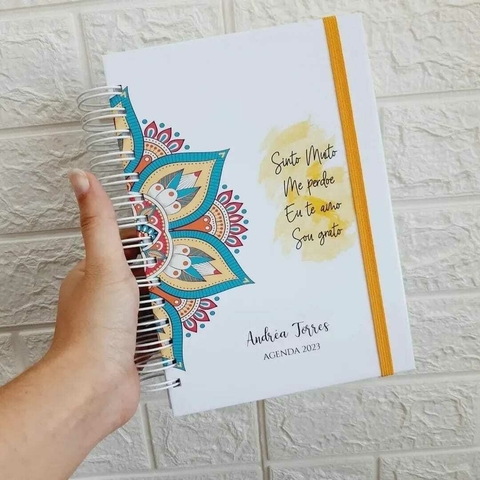 Sinto Muito
Me perdoe
Eu te amo
Sou grato
Andréa Torres
AGENDA 2023